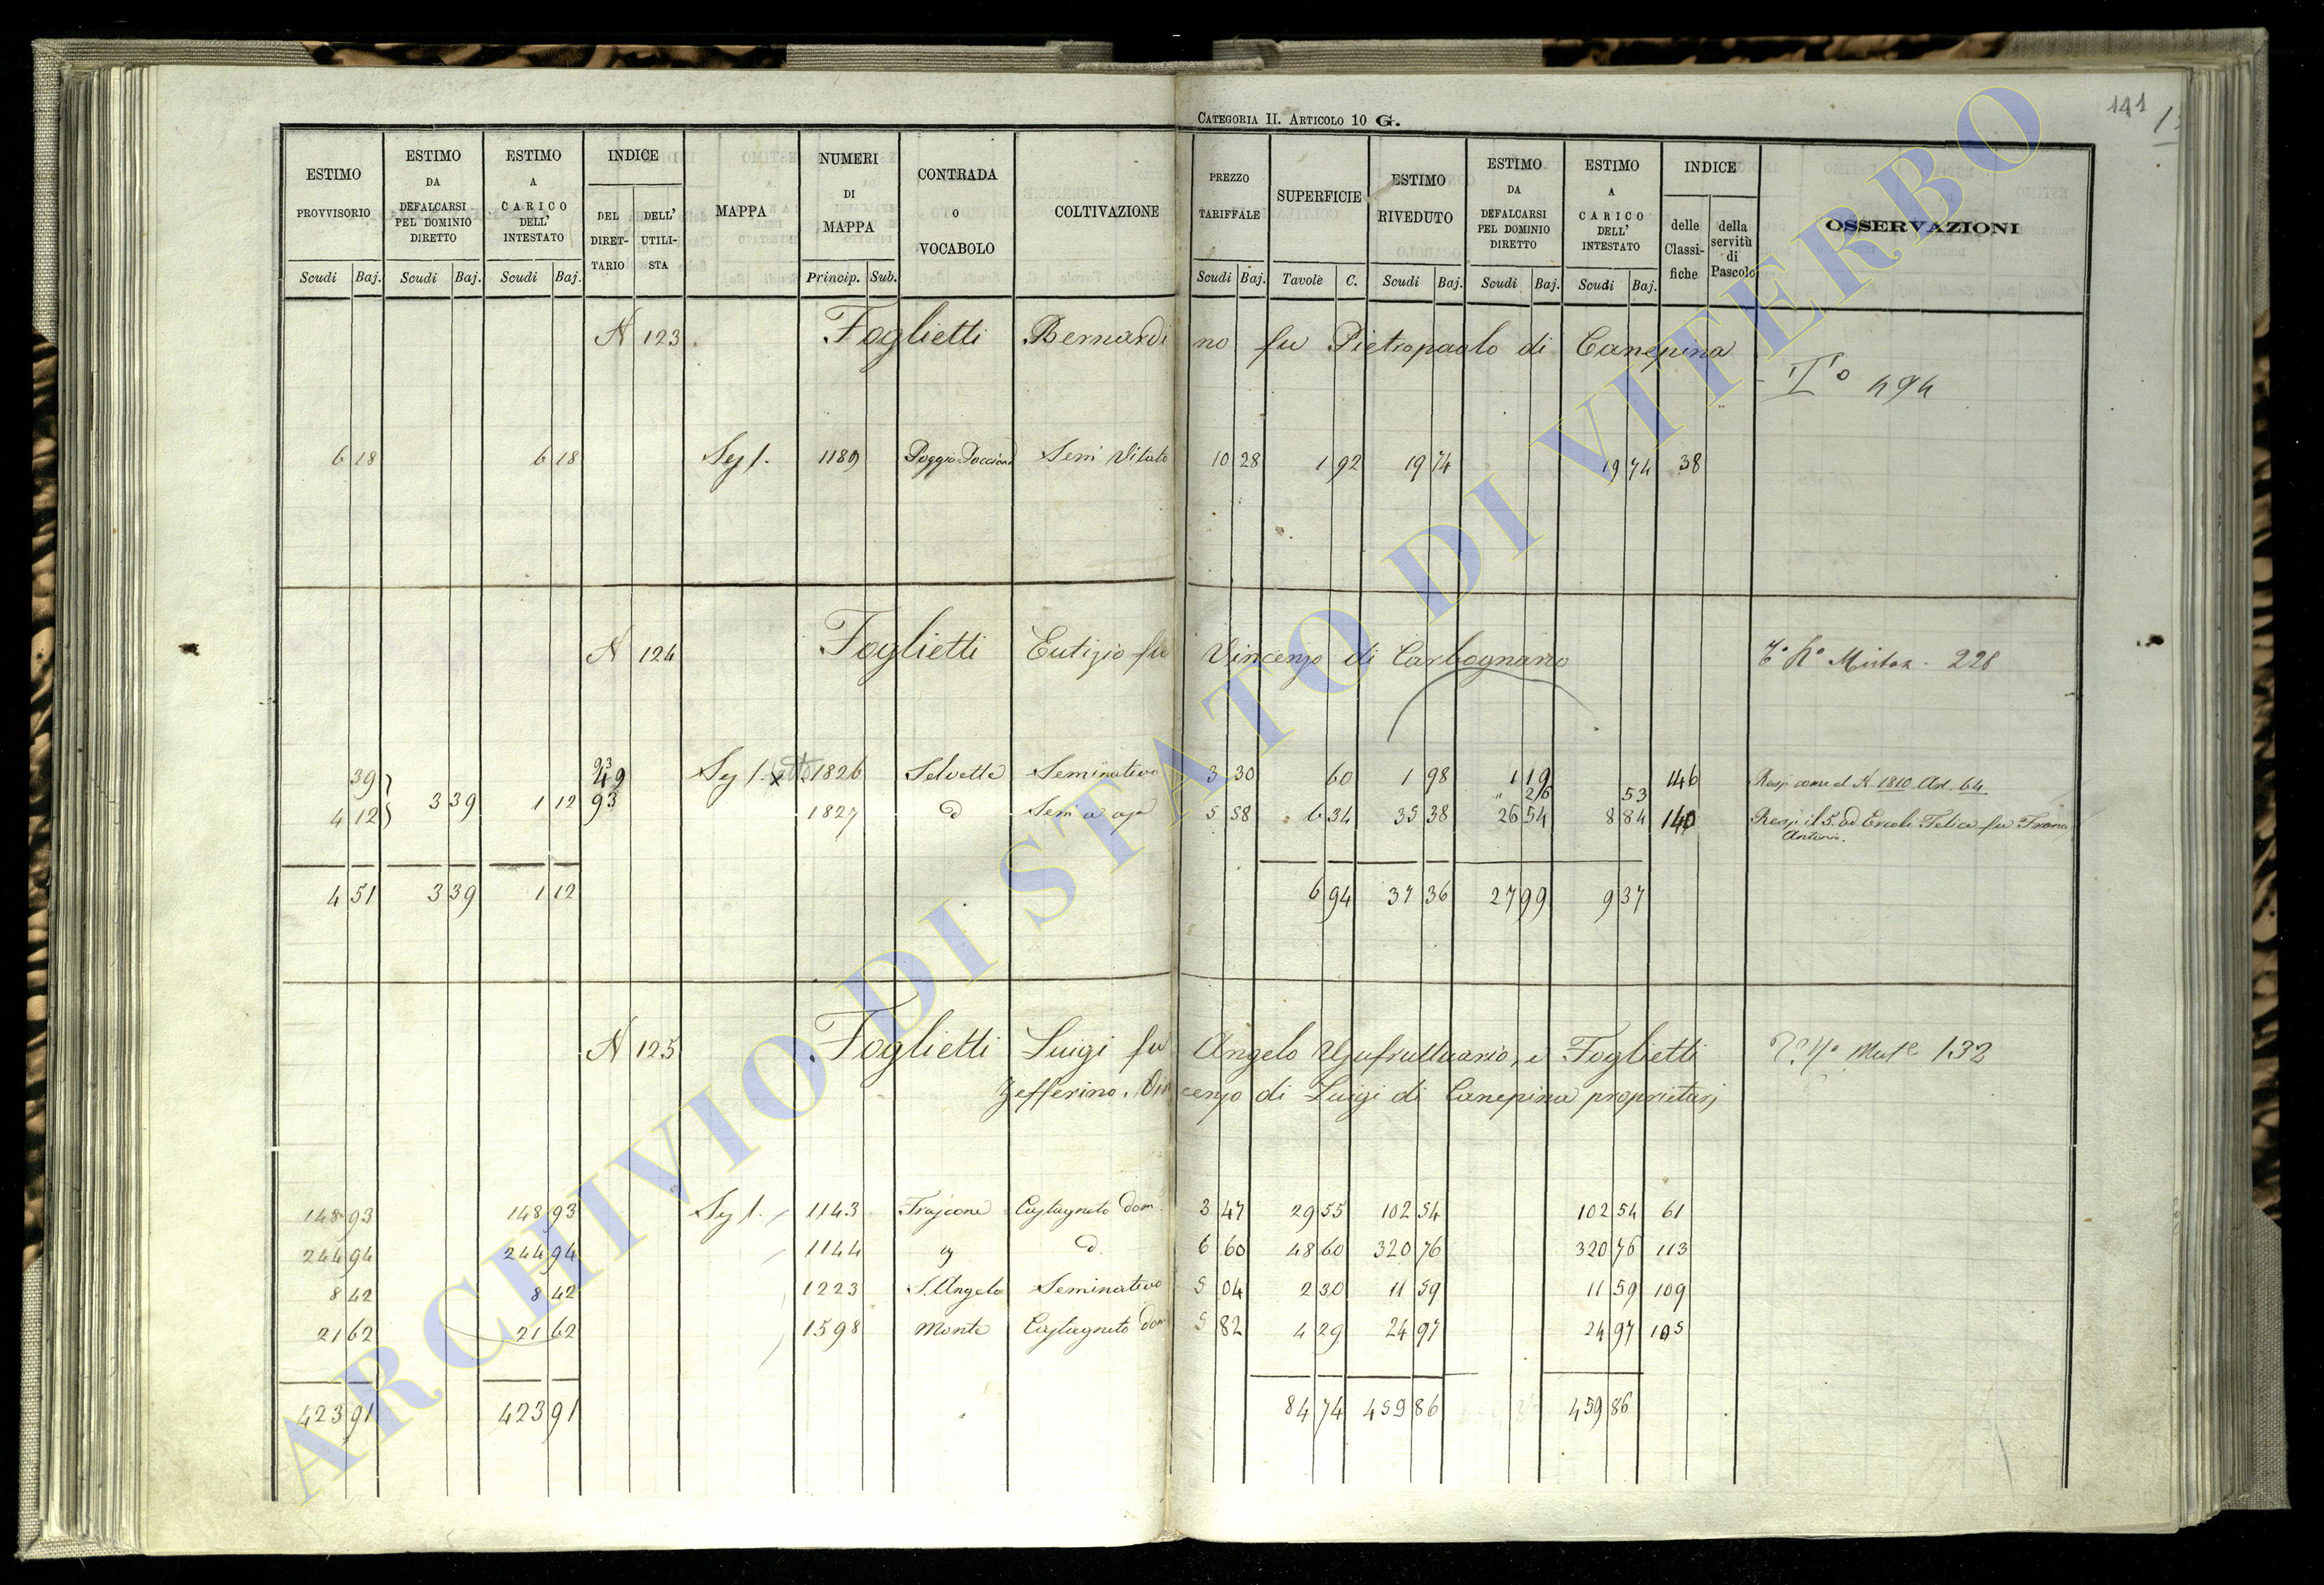 CATEGORIA II. ARTICOLO 10 G.
141
ESTIMO PROVVISORIO Scudi Baj.
ESTIMO DA DEFALCARSI PEL DOMINIO DIRETTO Scudi Baj.
ESTIMO A CARICO DELL' INTESTATO Scudi Baj.
INDICE DEL DIRET-TARIO DELL' UTILI-STA
MAPPA
NUMERI DI MAPPA Princip. Sub.
CONTRADA O VOCABOLO
COLTIVAZIONE
PREZZO TARIFFALE Scudi Baj.
SUPERFICIE Tavole C.
ESTIMO RIVEDUTO Scudi Baj.
ESTIMO DA DEFALCARSI PEL DOMINIO DIRETTO Scudi Baj.
ESTIMO A CARICO DELL' INTESTATO Scudi Baj.
INDICE delle Classi-fiche della servitù di Pascolo
OSSERVAZIONI
N 123 Foglietti Bernardino fu Pietropaolo di Canepina
494
6 18 6 18 Sez 1. 1189 Poggio Sem Vitato 10 28 1 92 19 74 19 74 38
N 124 Foglietti Eutizio fu Vincenzo di Carbognano 228
39 93 49 Sez 1. 1826 Selvette Seminativo 3 30 60 1 98 1 19 146 Resp come al N. 1810 Art. 64
" 26 53
4 12 3 39 1 12 93 1827 d Sem a op 5 58 6 34 35 38 26 54 8 84 140 Resp il 5. ad Ercoli Felice fu Franc
Antonio.
4 51 3 39 1 12 6 94 37 36 27 99 9 37
N 125 Foglietti Luigi fu Angelo Usufruttuario, e Foglietti 132
Zefferino, Vincenzo di Luigi di Canepina proprietarj
148 93 148 93 Sez 1. 1143 Trajcone Castagneto dom. 3 47 29 55 102 54 102 54 61
244 94 244 94 1144 d. 6 60 48 60 320 76 320 76 113
8 42 8 42 1223 S. Angelo Seminativo 5 04 2 30 11 59 11 59 109
21 62 21 62 1598 Monte Castagneto dom 5 82 4 29 24 97 24 97 105
423 91 423 91 84 74 459 86 459 86
ARCHIVIO DI STATO DI VITERBO